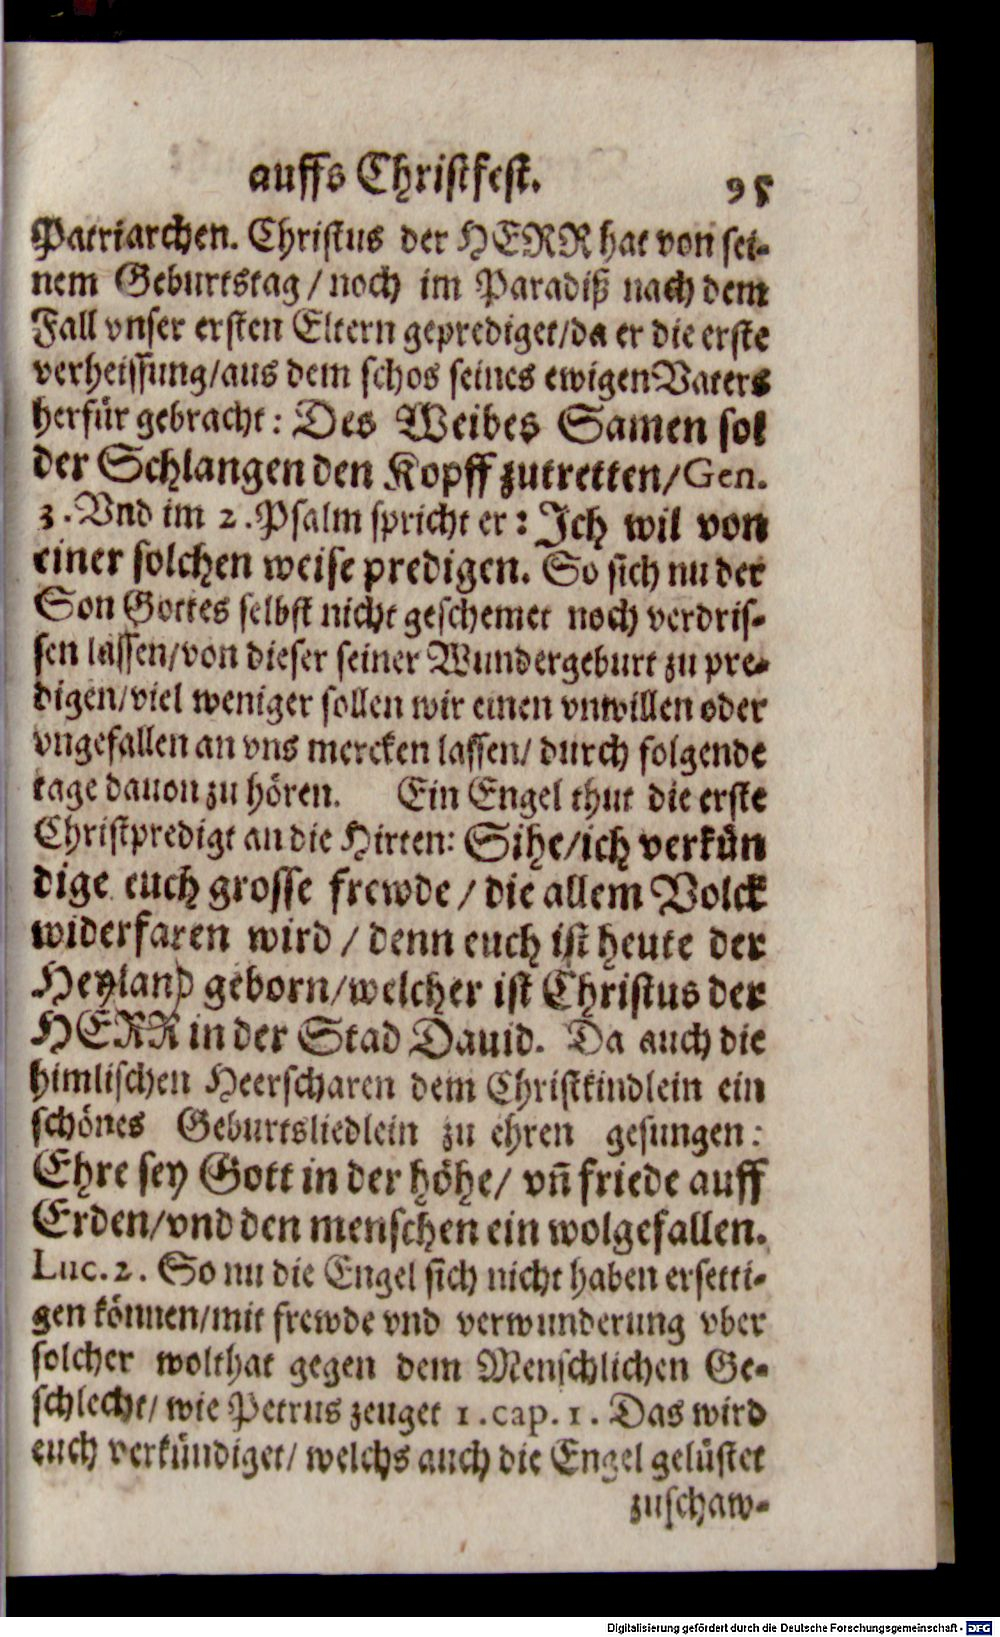 auffs Christfest. 95
Patriarchen. Christus der HERR hat von sei-
nem Geburtstag / noch im Paradiß nach dem
Fall vnser ersten Eltern geprediget/da er die erste
verheissung/aus dem schos seines ewigen Vaters
herfür gebracht: Des Weibes Samen sol
der Schlangen den Kopff zutretten/Gen.
3. Vnd im 2. Psalm spricht er: Ich wil von
einer solchen weise predigen. So sich nu der
Son Gottes selbst nicht geschemet noch verdris-
sen lassen/von dieser seiner Wundergeburt zu pre-
digen/viel weniger sollen wir einen vnwillen oder
vngefallen an vns mercken lassen/ durch folgende
tage dauon zu hören. Ein Engel thut die erste
Christpredigt an die Hirten: Sihe/ich verkün
dige euch grosse frewde / die allem Volck
widerfaren wird / denn euch ist heute der
Heyland geborn/welcher ist Christus der
HERR in der Stad Dauid. Da auch die
himlischen Heerscharen dem Christkindlein ein
schönes Geburtsliedlein zu ehren gesungen:
Ehre sey Gott in der höhe/ vñ friede auff
Erden/vnd den menschen ein wolgefallen.
Luc. 2. So nu die Engel sich nicht haben ersetti-
gen können/mit frewde vnd verwunderung vber
solcher wolthat gegen dem Menschlichen Ge-
schlecht/ wie Petrus zeuget 1. cap. 1. Das wird
euch verkündiget/ welchs auch die Engel gelüstet
zuschaw-
Digitalisierung gefördert durch die Deutsche Forschungsgemeinschaft - DFG